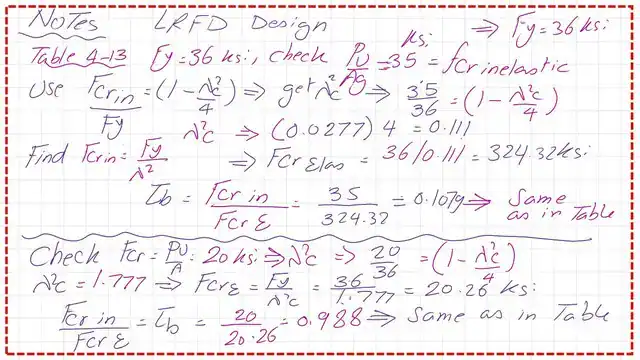 Notes LRFD Design ⇒ Fy=36 ksi
Table 4-13 Fy=36 ksi, check Pu/Ag=35 ksi = fcr inelastic
Use Fcr in/Fy = (1-λ²c/4) ⇒ get λ²c ⇒ 35/36 = (1-λ²c/4)
λ²c ⇒ (0.0277) 4 = 0.111
Find Fcr in = Fy/λ² ⇒ Fcr Elas = 36/0.111 = 324.32 ksi
τb = Fcr in/Fcr E = 35/324.32 = 0.1079 ⇒ Same as in Table
Check Fcr = Pu/A = 20 ksi ⇒ λ²c ⇒ 20/36 = (1-λ²c/4)
λ²c = 1.777 ⇒ Fcr E = Fy/λ²c = 36/1.777 = 20.26 ksi
Fcr in/Fcr E = τb = 20/20.26 = 0.988 ⇒ Same as in Table